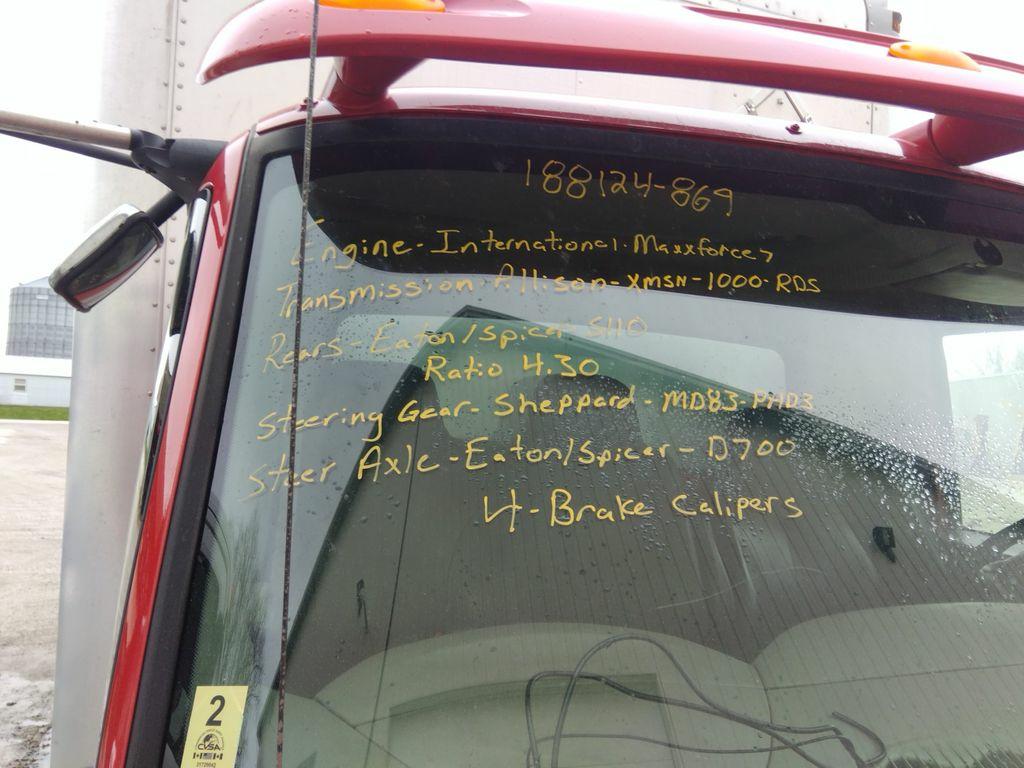 188124-869
Engine-International-Maxxforce7
Transmission-Allison-XMSN-1000-RDS
Rears-Eaton/Spicer-S110
Ratio 4.30
Steering Gear-Sheppard-MD83-PHD3
Steer Axle-Eaton/Spicer-D700
4-Brake Calipers
2
CVSA